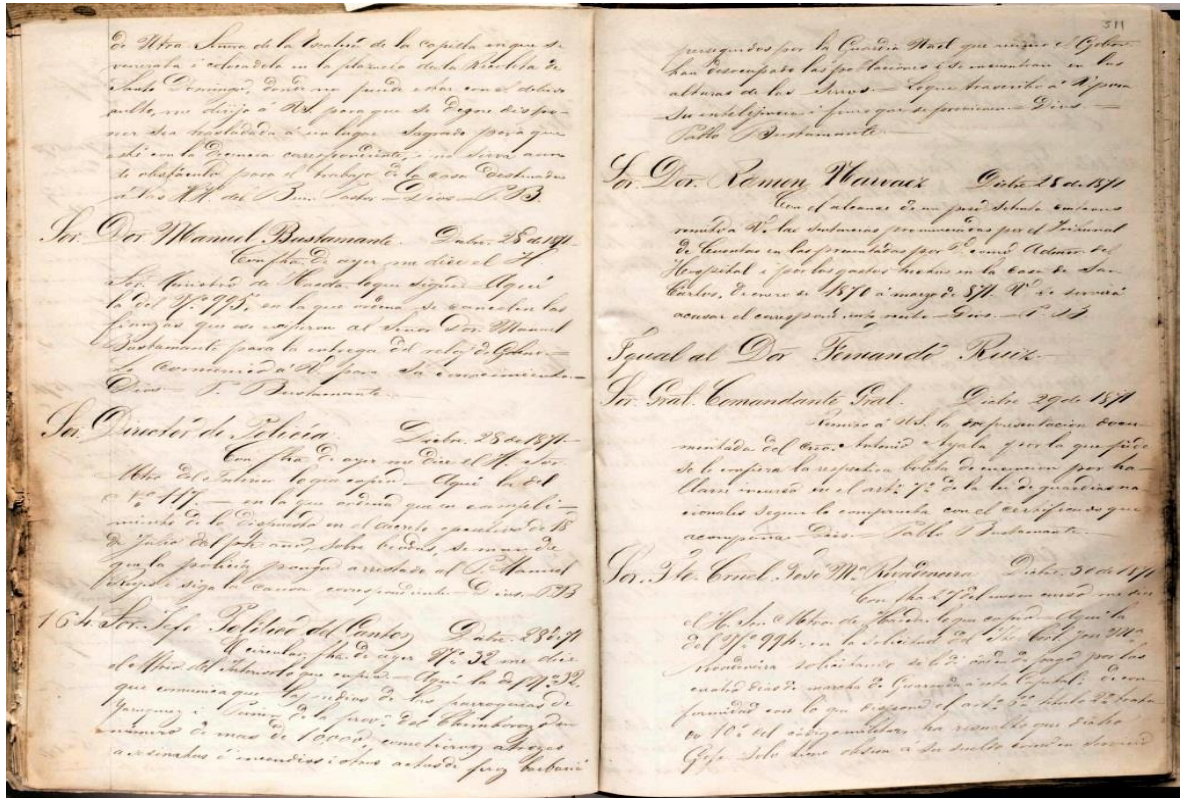 de Ntra. Señora de la Escalera de la capilla en que se
veneraba i colocadola en la plazuela de la Recoleta de
Santo Domingo, donde no puede estar con el debido
culto, me dirijo á US. para que se digne dispo-
ner sea trasladada á un lugar sagrado para que
esté con la decencia correspondiente, i no sirva aun
de obstáculo para el trabajo de la casa destinada
á las HH. del Buen Pastor — Dios — P. B.
Sor. Dor Manuel Bustamante. Dbre. 28 de 1871—
Con fha. de ayer me dice el H.
Sor. Ministro de Hacda. lo que sigue — Aquí
la del No. 995, en la que ordena se cancelen las
fianzas que se exijieron al Señor Dor. Manuel
Bustamante para la entrega del reloj de Gobno.—
Lo comunico á U. para su conocimiento.—
Dios — P. Bustamante.—
Sor. Director de Policía. Dicbre. 28 de 1871—
Con fha. de ayer me dice el H. Sor.
Mtro. del Interior lo que copio — Aquí la del
No. 117 — en la que ordena que en cumpli-
miento de lo dispuesto en el decreto ejecutivo de 18
de Julio del pte. año, sobre beodos, se mande
que la policía ponga arrestado al P. Manuel
i siga la causa correspondiente — Dios — P. B
164. Sor. Jefe Político del Canton Dbre. 28 de 71
circular, fha. de ayer No. 32 me dice
el Mtro. del Interior lo que copio — Aquí la del No. 32
que comunica que los indios de las parroquias de
Yaruquíes i Punin, de la prova. del Chimborazo, en
número de mas de 10.000 cometieron atroces
asesinatos é incendios i otros actos de feroz barbarie
311
perseguidos por la Guardia Nacl. que reunió el Gobor.
han desocupado las poblaciones i se encuentran en las
alturas de los cerros — Lo que trascribo á U. para
su intelijencia i fines que se previenen — Dios —
Pablo Bustamante —
Sor. Dor. Ramon Narvaez Dicbre 28 de 1871
Con el alcance de un peso setenta centavos
remito á U. las sentencias pronunciadas por el Tribunal
de Cuentas en las presentadas por U. como Admor. del
Hospital i por los gastos hechos en la casa de San
Carlos, de enero de 1870 á marzo de 871. U. se servirá
acusar el correspondiente recibo — Dios — P. B
Igual al Dor Fernando Ruiz.—
Sor. Gral. Comandante Gral. Dicbre 29 de 1871
Remito á US. la representación docu-
mentada del Antonio Ayala por la que pide
se le confiera la respectiva boleta de excencion por ha-
llarse incurso en el arto. 7o. de la lei de guardias na-
cionales segun lo comprueba con el certificado que
acompaña — Dios — Pablo Bustamante —
Sor. Tte. Crnel. José Ma. Rivadeneira Dicbre. 30 de 1871
Con fha 27 del mes en curso me dice
el H. Sor. Mtro. de Hacda. lo que copio — Aquí la
del No. 994, en la solicitud del Tte. Corl. José Ma.
Rivadeneira solicitando se le dé órden de pago por los
cuatro dias de marcha de Guaranda á esta Capital: de con-
formidad con lo que dispone el arto. 5o. título 2o. tratado
10o. del código militar, ha resuelto que dicho
Gefe solo tiene opcion a su sueldo